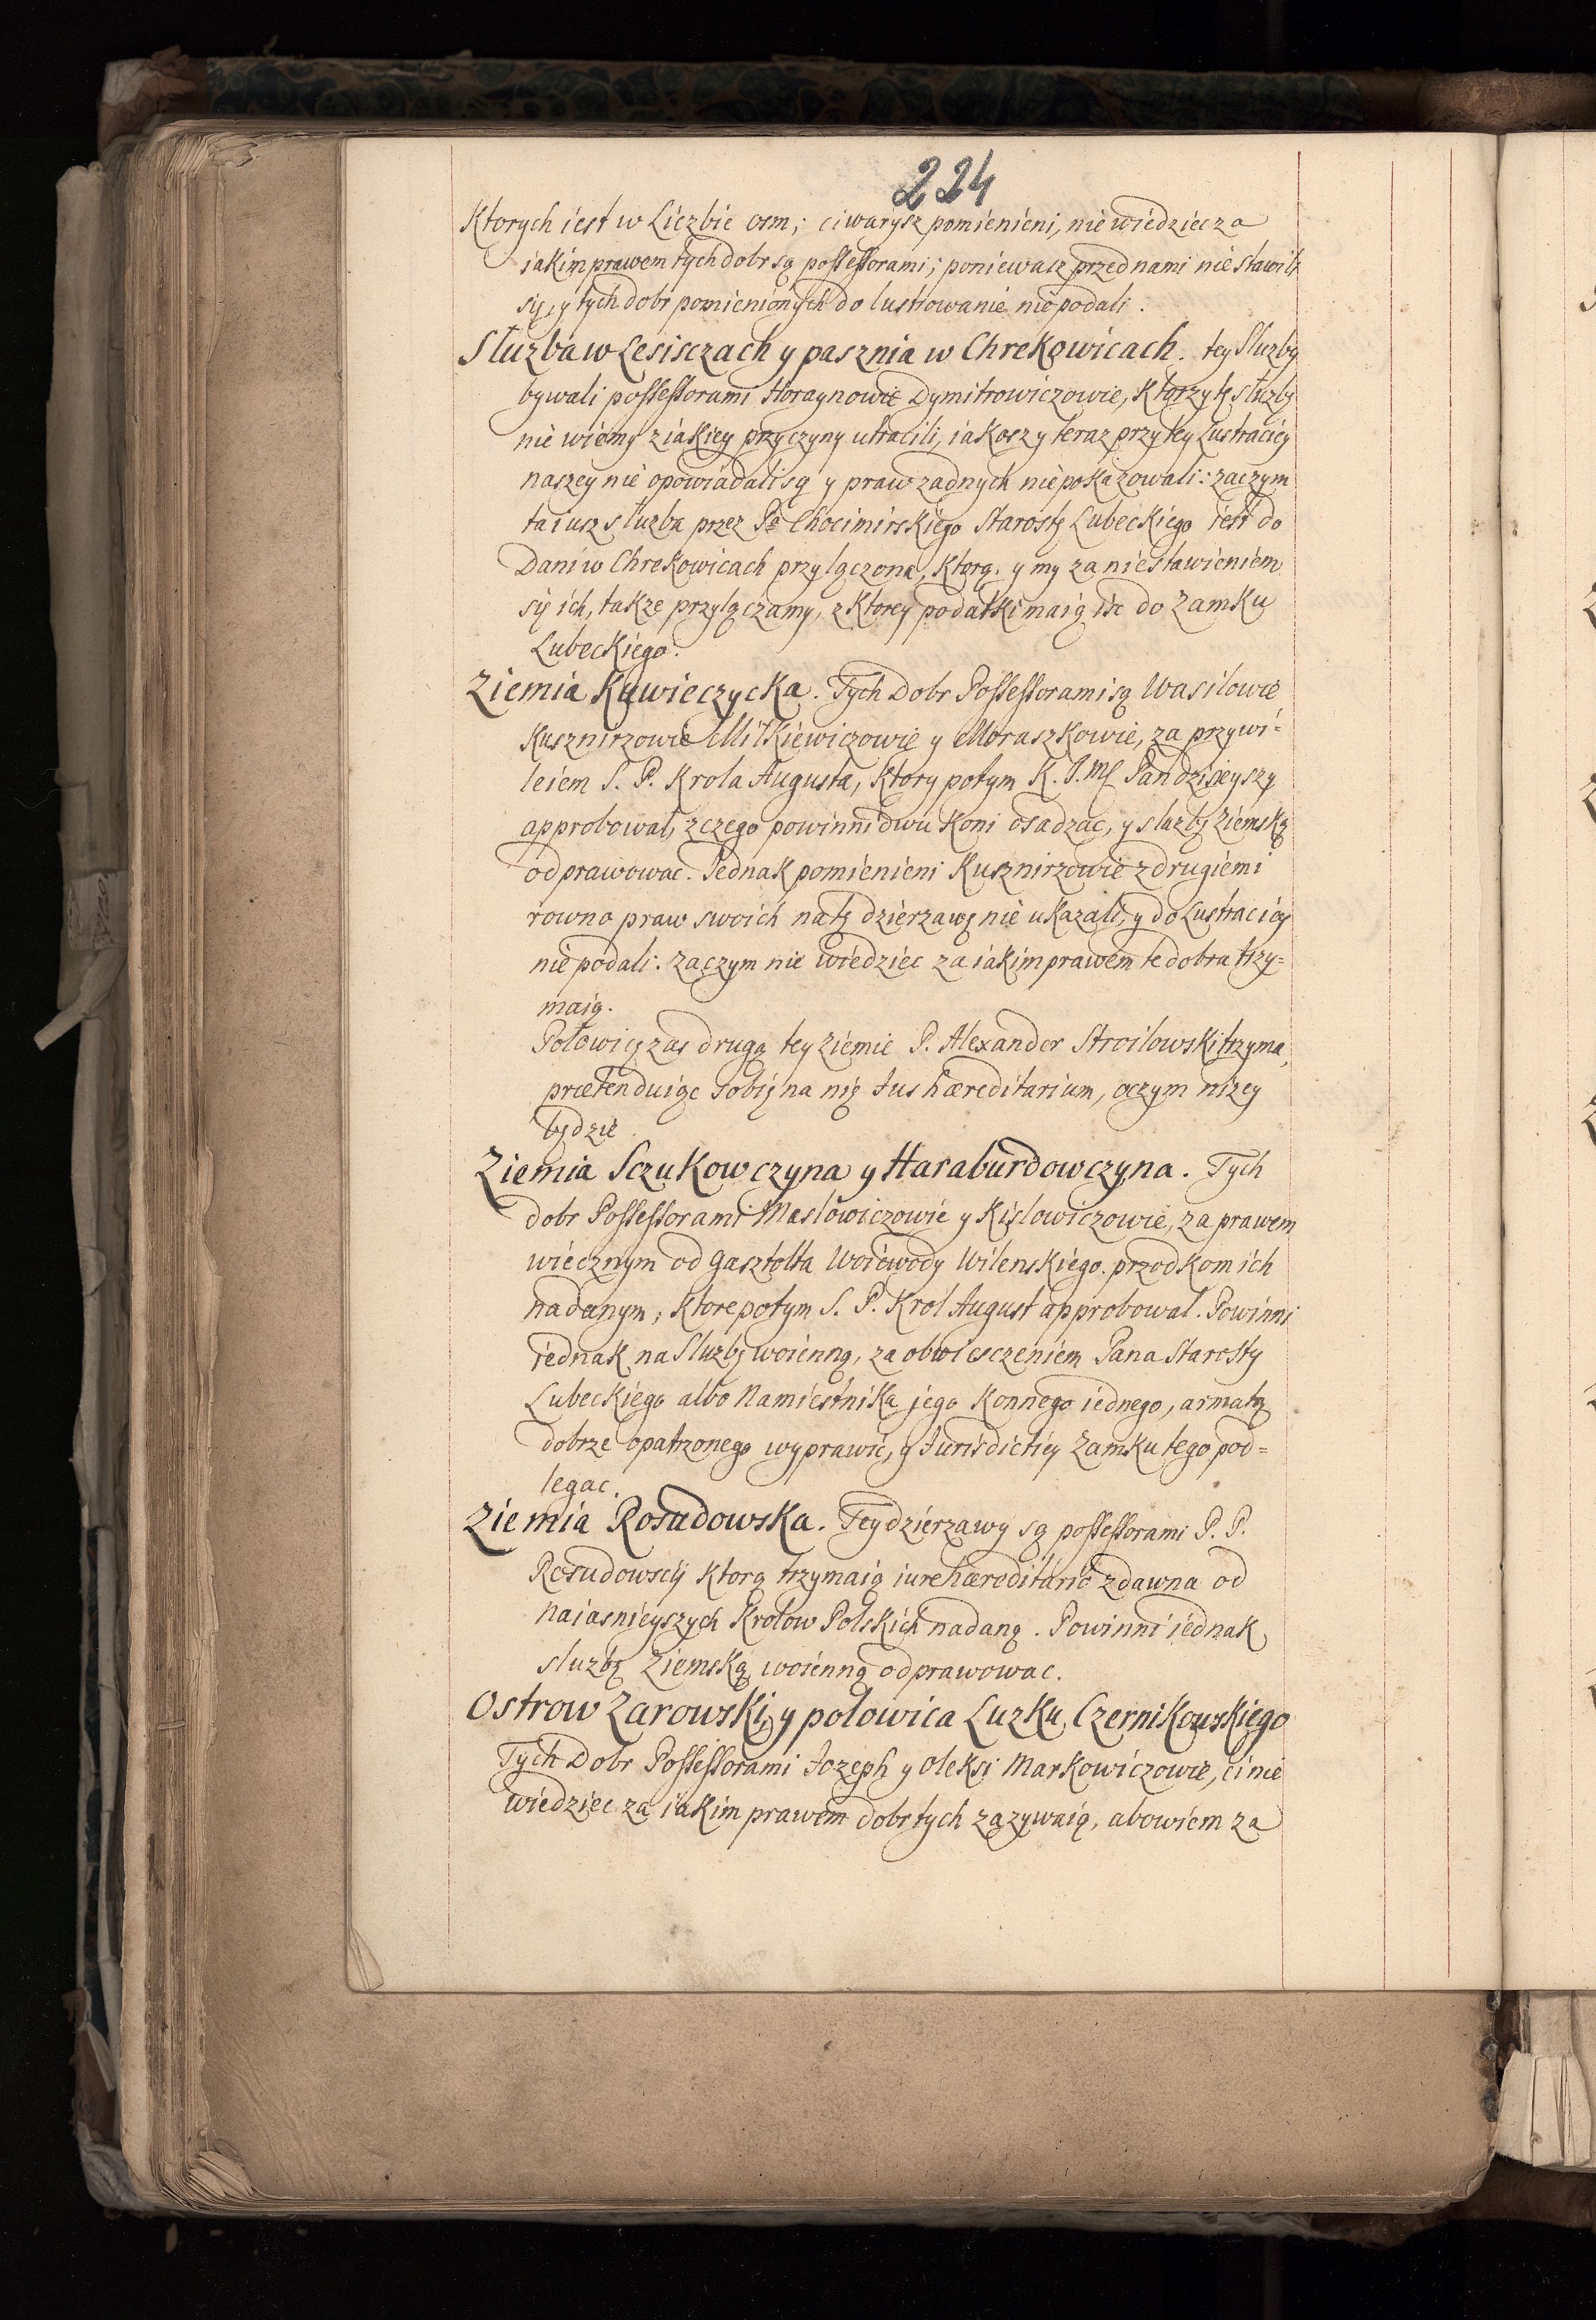 224
Ktorych iest w Liczbie osm; ci warysz pomienieni, nie wiedziec za
iakim prawem tych dobr są possessorami; poniewasz przed nami nie stawili
się, y tych dobr pomienionych do lustrowanie nie podali.
Służba w Lesisczach y pasznia w Chrekowicach. tey Sluzby
bywali possessorami Horaynowie Dymitrowiczowie, Ktorzy tę służbę
nie wiemy z iakiey przyczyny utracili, iakosz y teraz przy tey Lustraciey
naszey nie opowiadali są y praw zadnych nie pokazowali: zaczym
ta iusz służba przez Pa Chocimirskiego Starostę Lubeckiego iest do
Dani w Chrekowicach przyłączona, Ktorą y my za nie stawieniem
się ich, takze przyłączamy, z Ktorey podatki maią iść do Zamku
Lubeckiego.
Ziemia Kuwieczycka. Tych Dobr Possessorami są Wasilowie
Kusznirzowie Mitkiewiczowie y Moraszkowie, za przywi-
leiem S. P. Krola Augusta, Ktory potym K. J. Mc Pan dzisieyszy
approbował, z czego powinni dwu Koni osadzac, y sluzbę Ziemską
odprawowac. Jednak pomienieni Kusznirzowie z drugiemi
rowno praw swoich na tę dzierzawę nie ukazali, y do Lustraciey
nie podali: zaczym nie wiedziec za iakim prawem te dobra trzy-
maią.
Połowicę zas drugą tey Ziemie P. Alexander Stroilowski trzyma,
prætenduiąc sobię na nię Jus hæreditarium, o czym nizey
będzie.
Ziemia Sczukowczyna y Haraburdowczyna. Tych
dobr Possessorami Masłowiczowie y Kislowiczowie, za prawem
wiecznym od Gasztołta Woiewody Wilenskiego przodkom ich
nadanym; Ktore potym S. P. Krol August approbowal. Powinni
iednak na Służbę woienną, za obwiesczeniem Pana Starosty
Lubeckiego albo Namiestnika jego Konnego iednego, armatą
dobrze opatrzonego wyprawić, y Jurisdictiey Zamku tego pod-
legac.
Ziemia Rosudowska. Tey dzierzawy są possessorami P. P.
Rosudowscy Ktorą trzymaią iure hæreditario z dawna od
Naiasnieyszych Krolow Polskich nadaną. Powinni iednak
sluzbę Ziemską woienną odprawowac.
Ostrow Zarowski, y połowica Luzku Czernikowskiego
Tych Dobr Possessorami Jozeph y Oleksi Markowiczowie, ci nie
wiedziec za iakim prawem dobr tych zązywaią, abowiem za